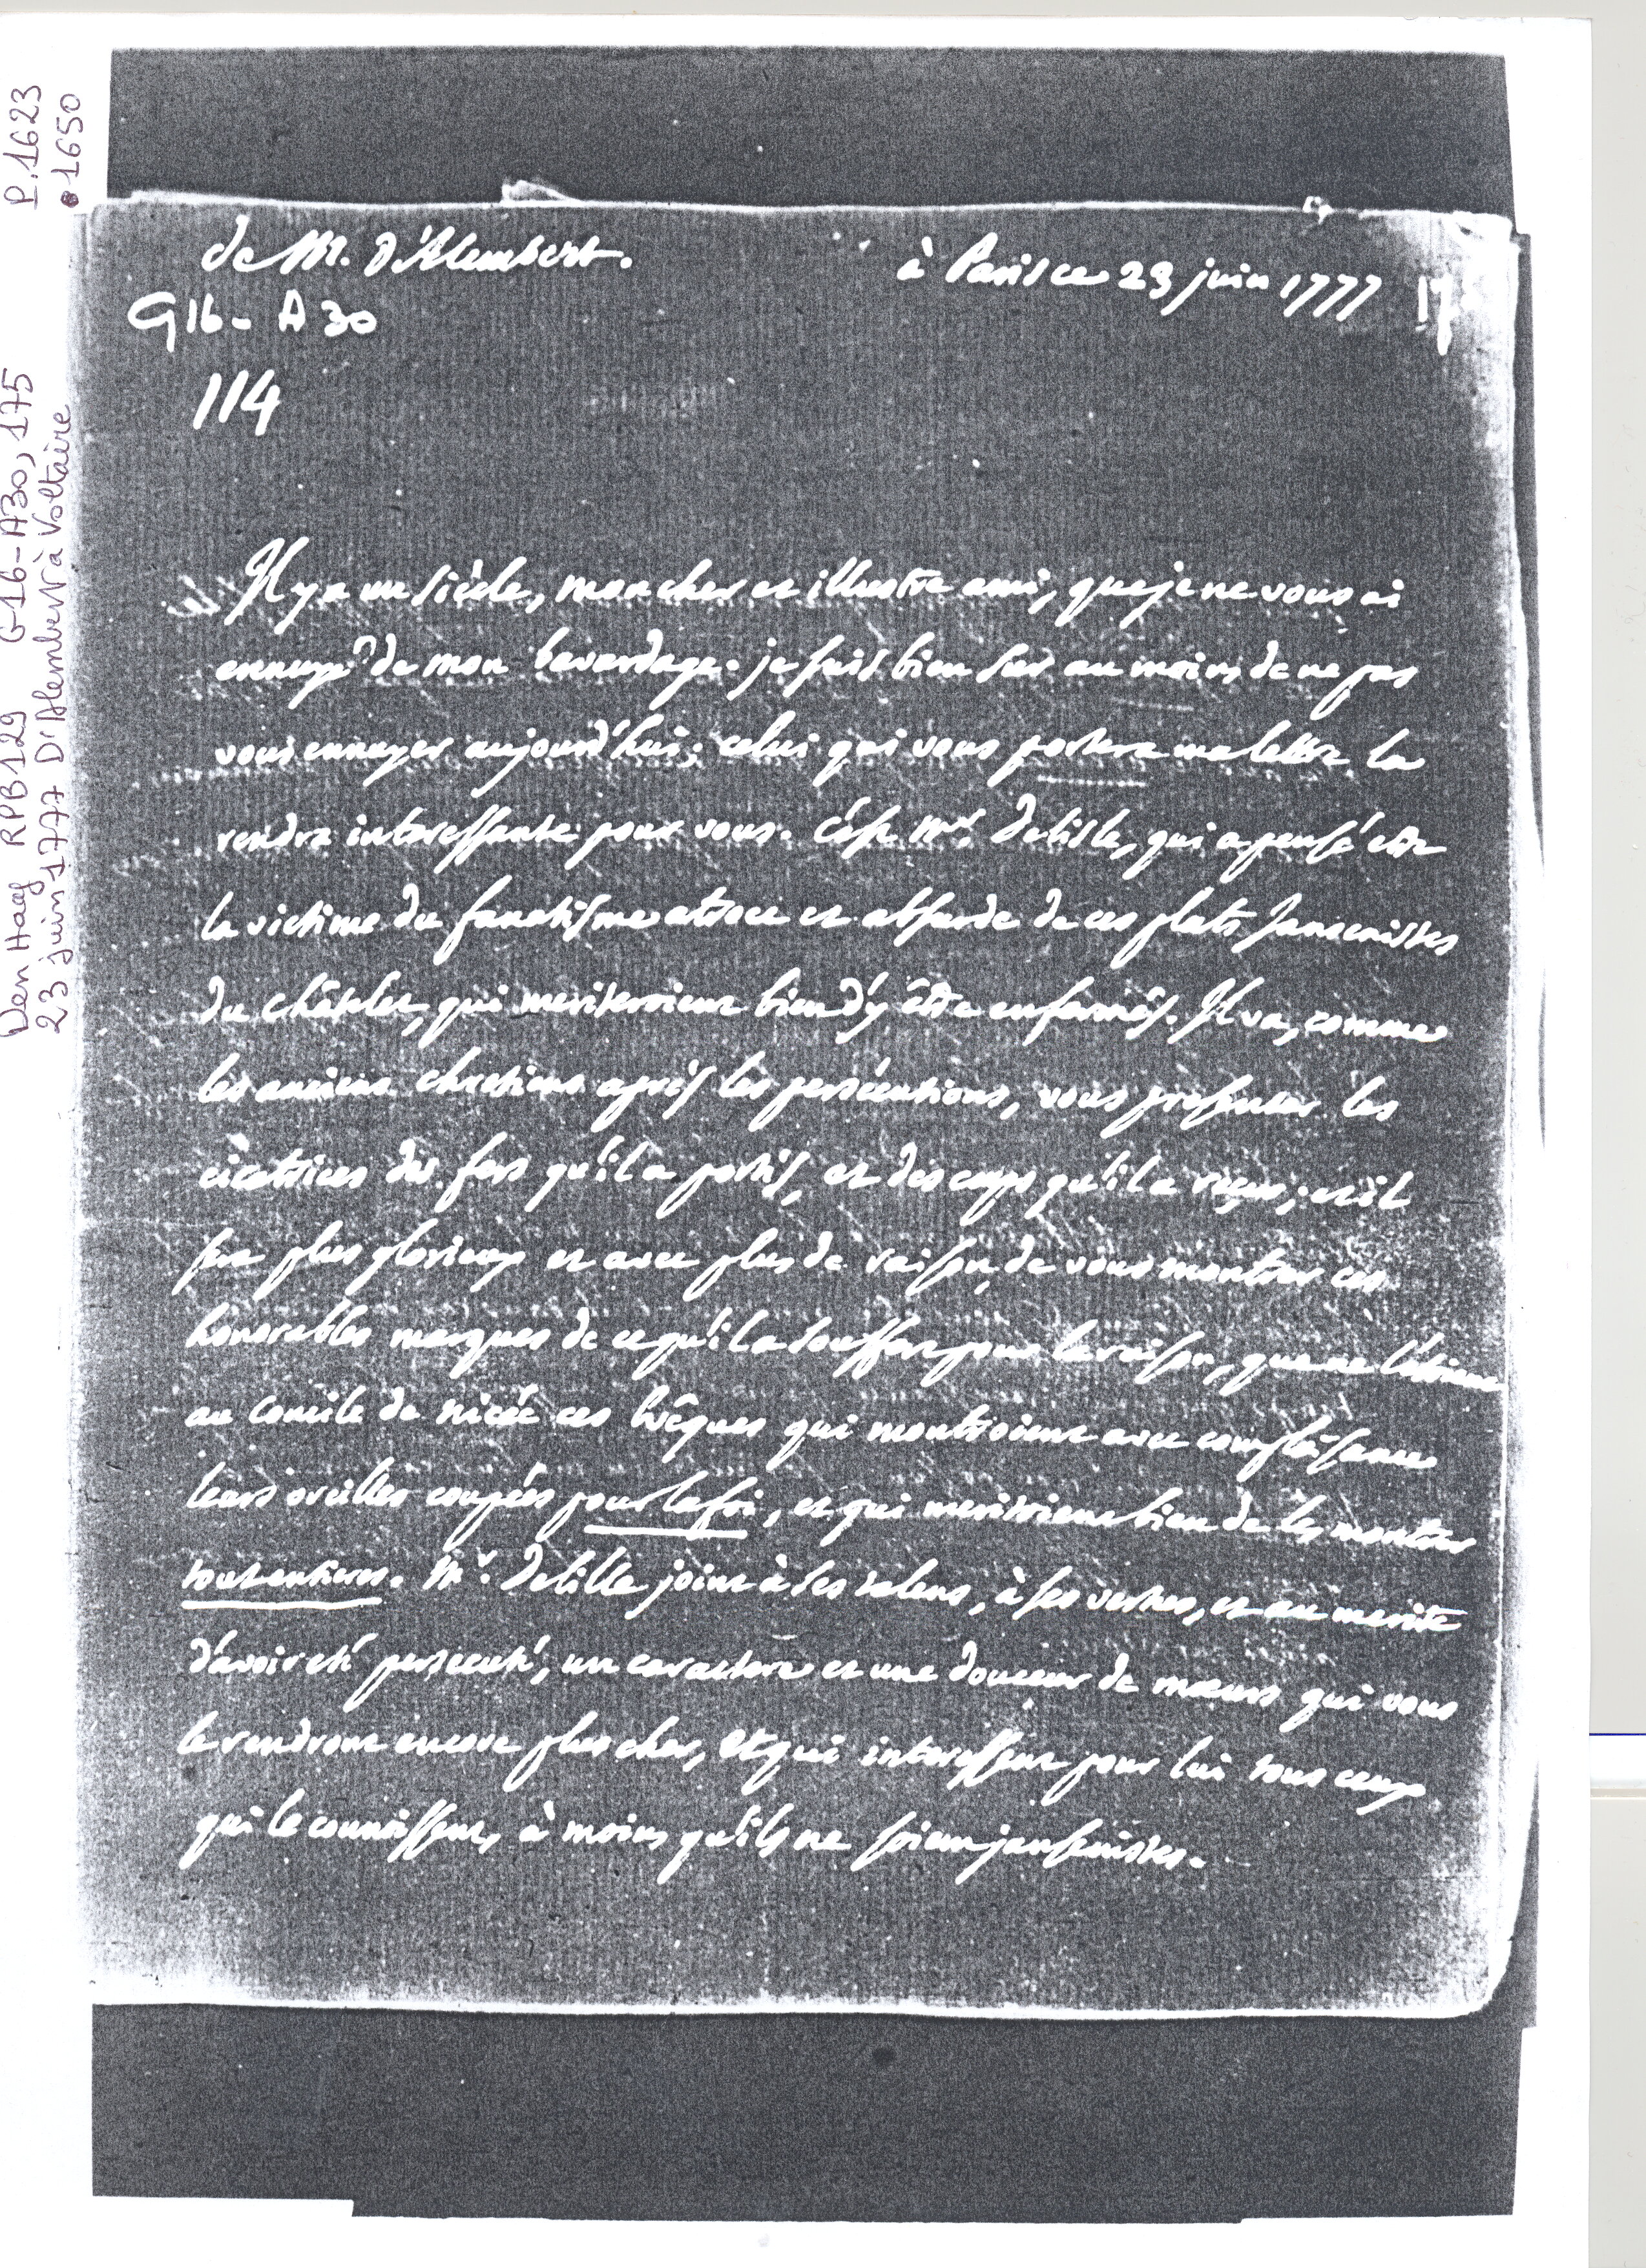 P.1623
1650
Den Haag RPB129 G16-A30, 175
23 juin 1777 D'Alembert à Voltaire
de M. D'Alembert.
à Paris ce 23 juin 1777
G16-A30
114
Il y a un siècle, mon cher et illustre ami, que je ne vous ai
ennuyé de mon bavardage. je suis bien sur au moins de ne pas
vous ennuyer aujourd'hui; celui qui vous portera ma lettre la
rendra interessante pour vous. C'est Mr. Delisle, qui a pensé être
la victime du fanatisme atroce et absurde de ces plats Jansenistes
du châtelet, qui meriteroient bien d'y être enfermés. Il va, comme
les anciens chretiens après les persécutions, vous presenter les
cicatrices des fers qu'il a portés, et des coups qu'il a reçus; et il
sera plus glorieux et avec plus de raison de vous montrer ces
honorables marques de ce qu'il a souffert pour la raison, que ne l'étoient
au Concile de nicée ces Evêques qui montroient avec complaisance
leurs oreilles coupées pour la foi, et qui meritoient bien de les montrer
tout entieres. Mr. Delille joint à ses talens, à ses vertus, et au merite
d'avoir été persecuté, un caractere et une douceur de moeurs qui vous
le rendront encore plus cher, et qui interessent pour lui tous ceux
qui le connoissent, à moins qu'ils ne soient jansenistes.